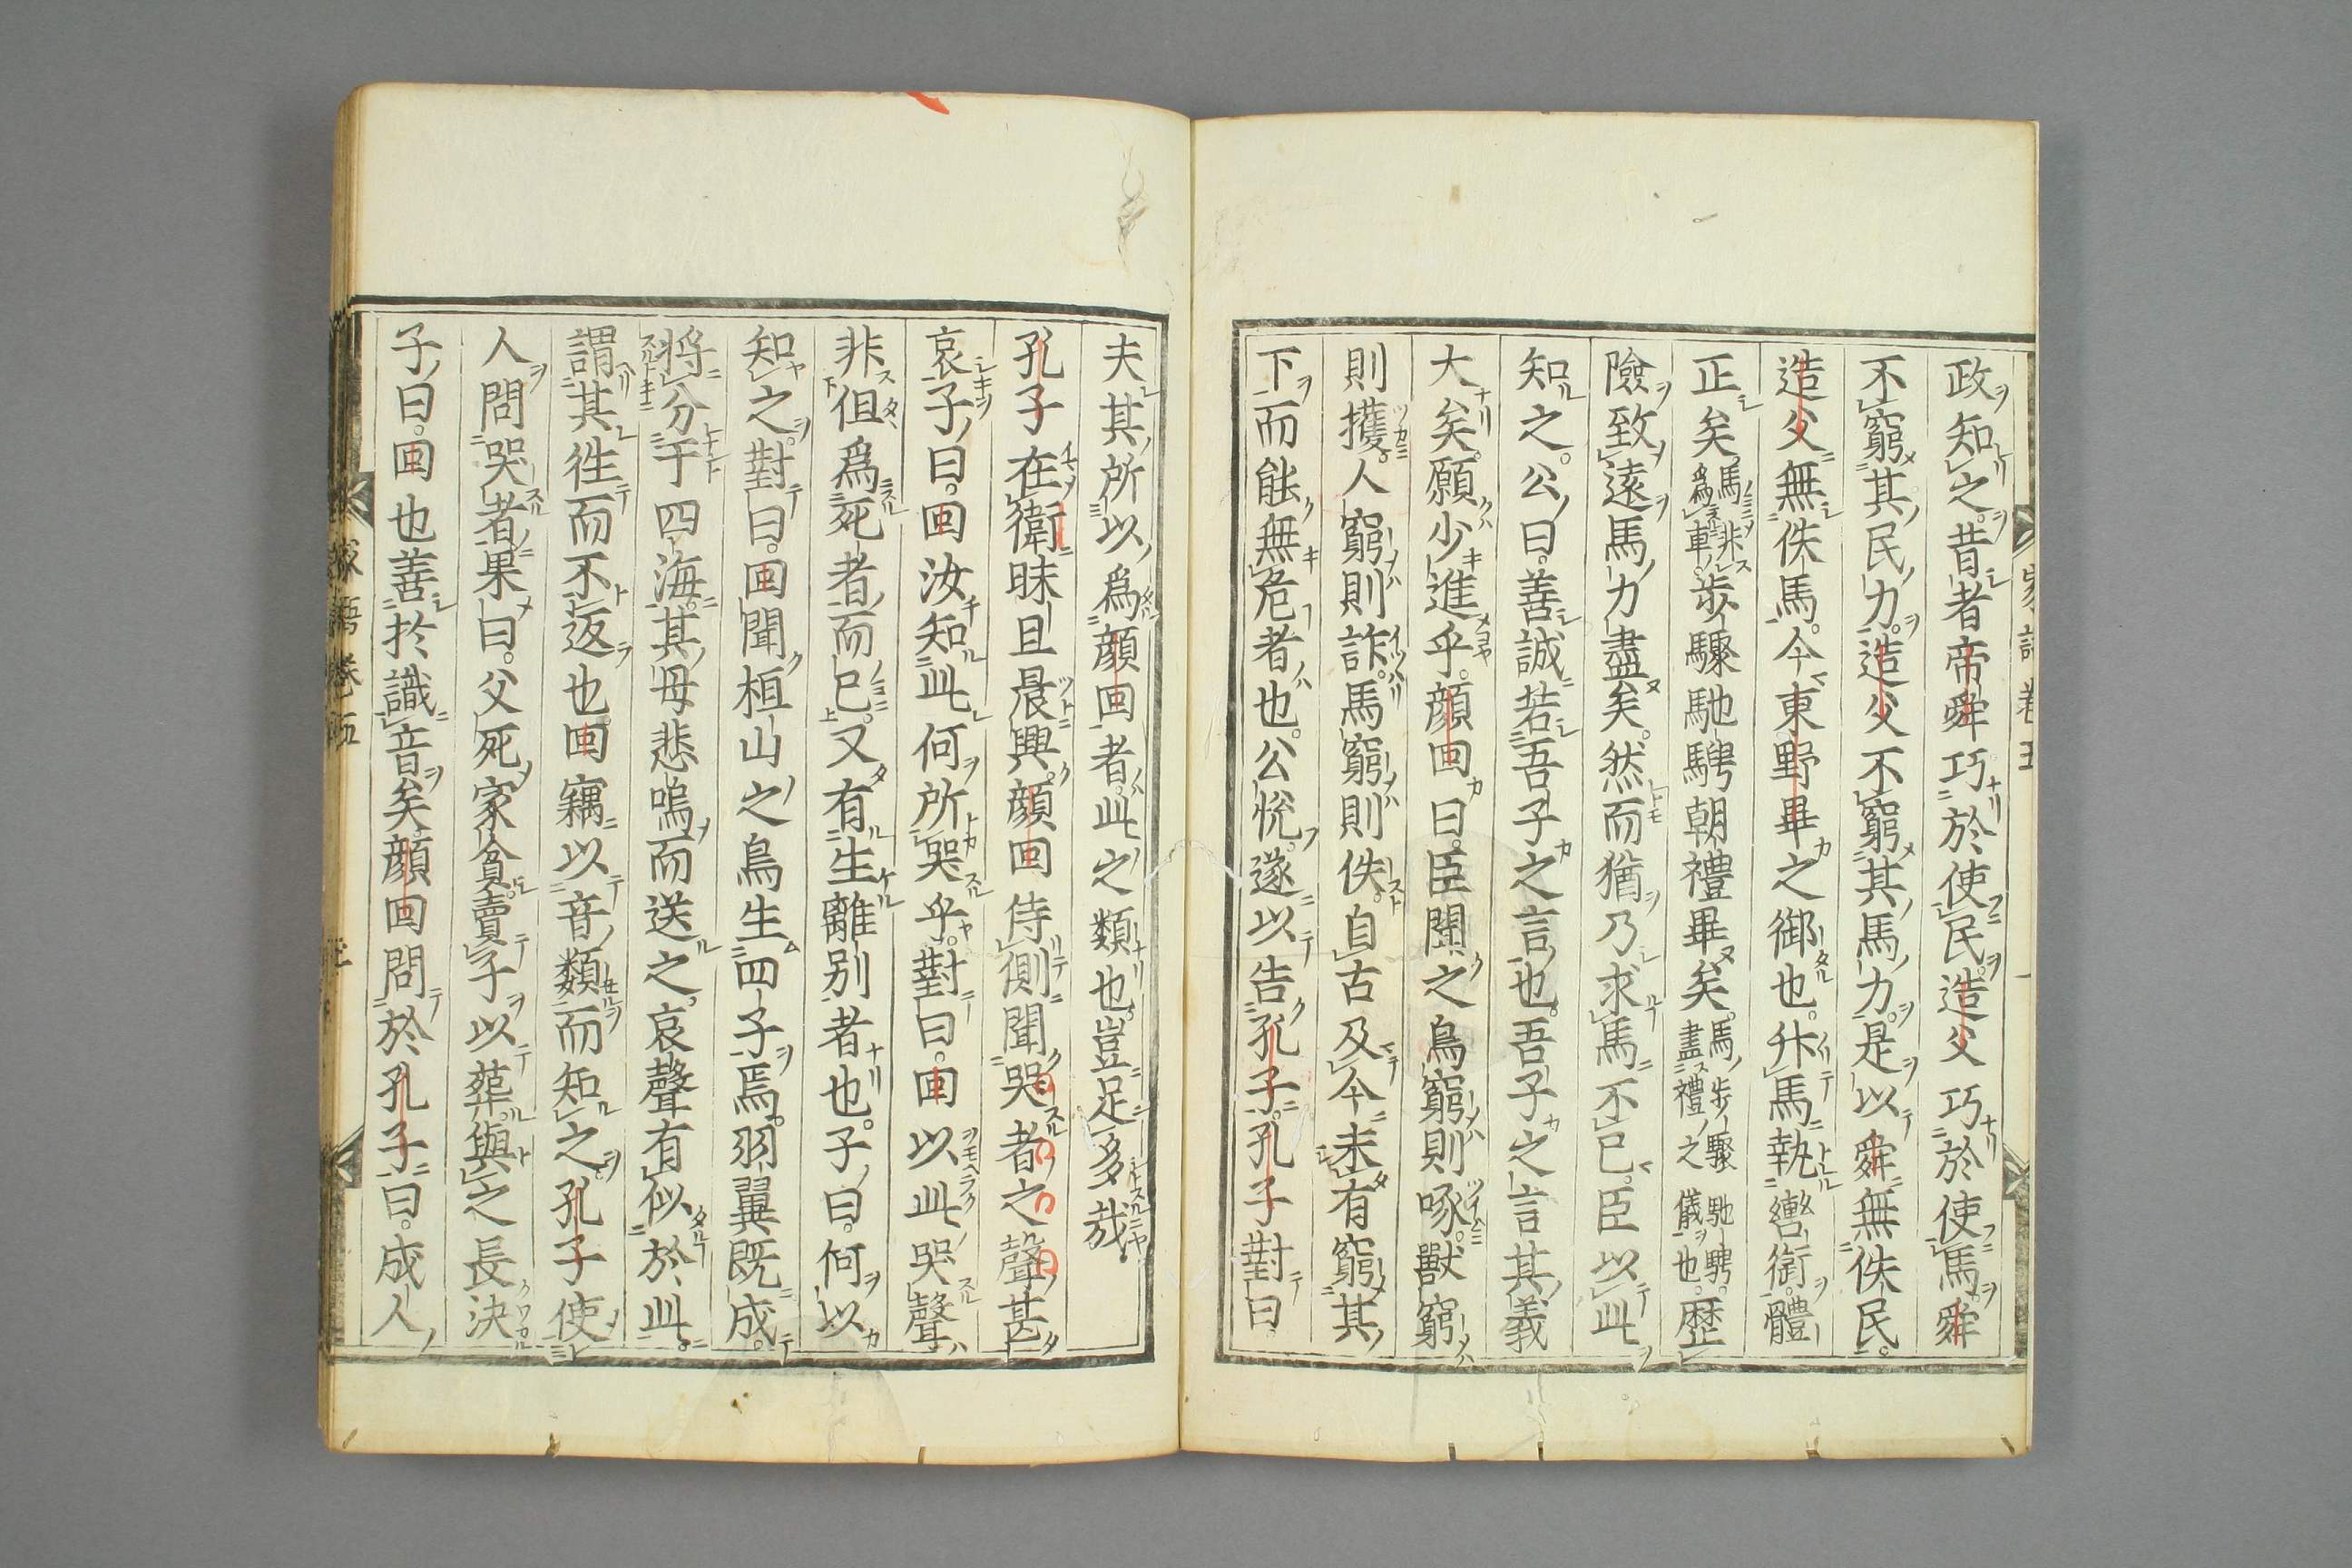 政知之。昔者帝舜巧於使民。造父巧於使馬。舜
不窮其民力。造父不窮其馬力。是以舜無佚民。
造父無佚馬。今東野畢之御也。升馬執轡。銜體
正矣。馬非爲車。步驟馳騁朝禮畢矣。馬步驟馳騁。盡禮之儀也。歷
險致遠馬力盡矣。然而猶乃求馬不已。臣以此
知之。公曰。善誠若吾子之言也。吾子之言其義
大矣。願少進乎。顏回曰。臣聞之鳥窮則啄。獸窮
則攫。人窮則詐。馬窮則佚。自古及今未有窮其
下而能無危者也。公悅。遂以告孔子。孔子對曰
夫其所以爲顏回者。此之類也。豈足多哉。
孔子在衛昧旦晨興。顏回侍側聞哭者之聲甚
哀。子曰。回汝知此何所哭乎。對曰。回以此哭聲
非但爲死者而已。又有生離別者也。子曰。何以
知之。對曰。回聞桓山之鳥生四子焉。羽翼既成。
將分于四海。其母悲鳴而送之。哀聲有似於此。
謂其徃而不返也。回竊以音類而知之。孔子使
人問哭者。果曰。父死家貧。賣子以葬。與之長決
子曰。回也善於識音矣。顏回問於孔子曰。成人
家語卷五